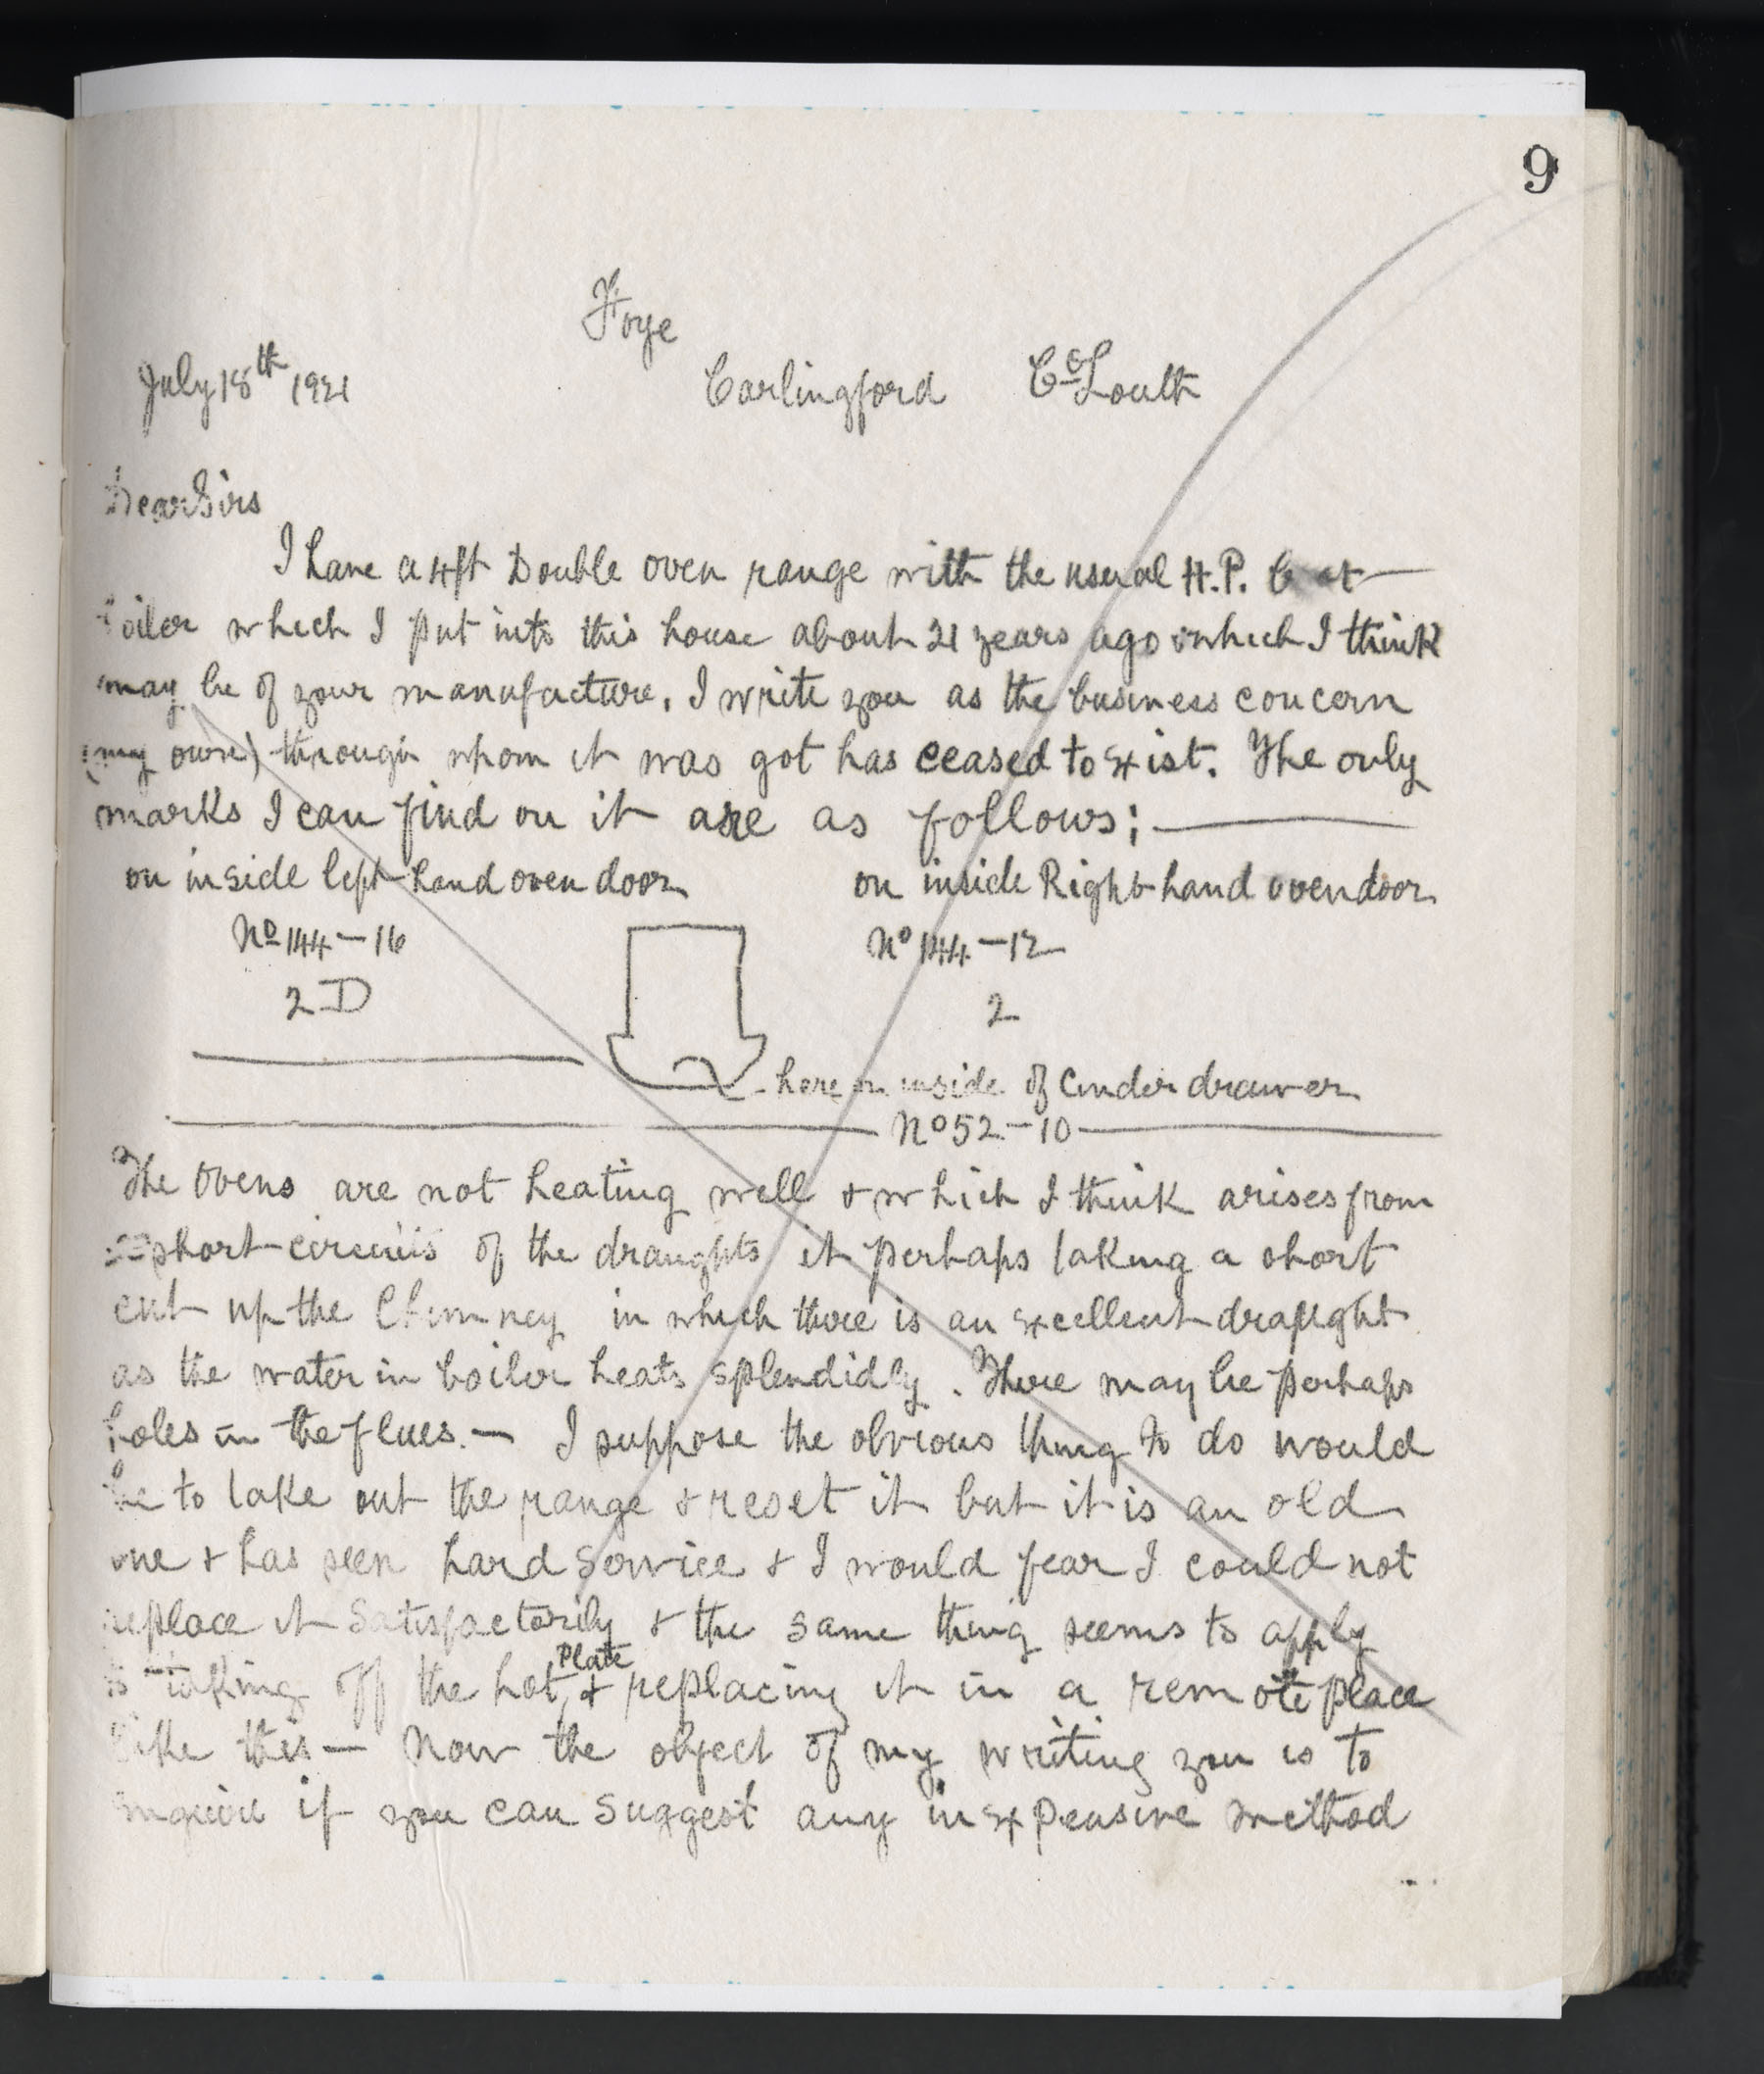 9
Foye
July 18th 1921 Carlingford Co Louth
Dear Sirs
I have a 4ft Double oven range with the usual H.P. Boot
boiler which I put into this house about 21 years ago & which I think
may be of your manufacture. I write you as the business concern
(my own) through whom it was got has ceased to exist. The only
marks I can find on it are as follows; —
on inside left hand oven door on inside Right hand oven door
No 144 — 16 No 144 — 12
2 D 2
here on inside of Cinder drawer
No 52 — 10
The Ovens are not heating well & which I think arises from
short-circuits of the draughts it perhaps taking a short
cut up the Chimney in which there is an excellent draught
as the water in boiler heats splendidly. There may be perhaps
holes in the flues. — I suppose the obvious thing to do would
be to take out the range & reset it but it is an old
one & has seen hard service & I would fear I could not
replace it Satisfactorily & the same thing seems to apply
to taking off the hot Plate & replacing it in a remote place
like this — Now the object of my writing you is to
inquire if you can suggest any inexpensive method